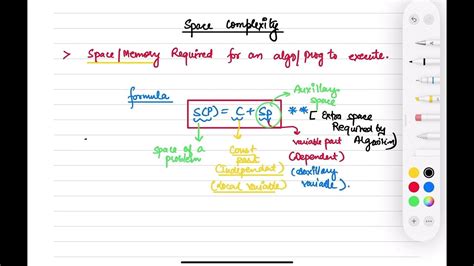 Space Complexity
> Space/Memory Required for an algo/prog to execute.
Auxillary space
formula
S(P) = C + Sp ** [Extra space Required by Algorithm)
space of a problem
Const part (independent) (Local variable)
variable part (Dependent) (Auxillary variable).